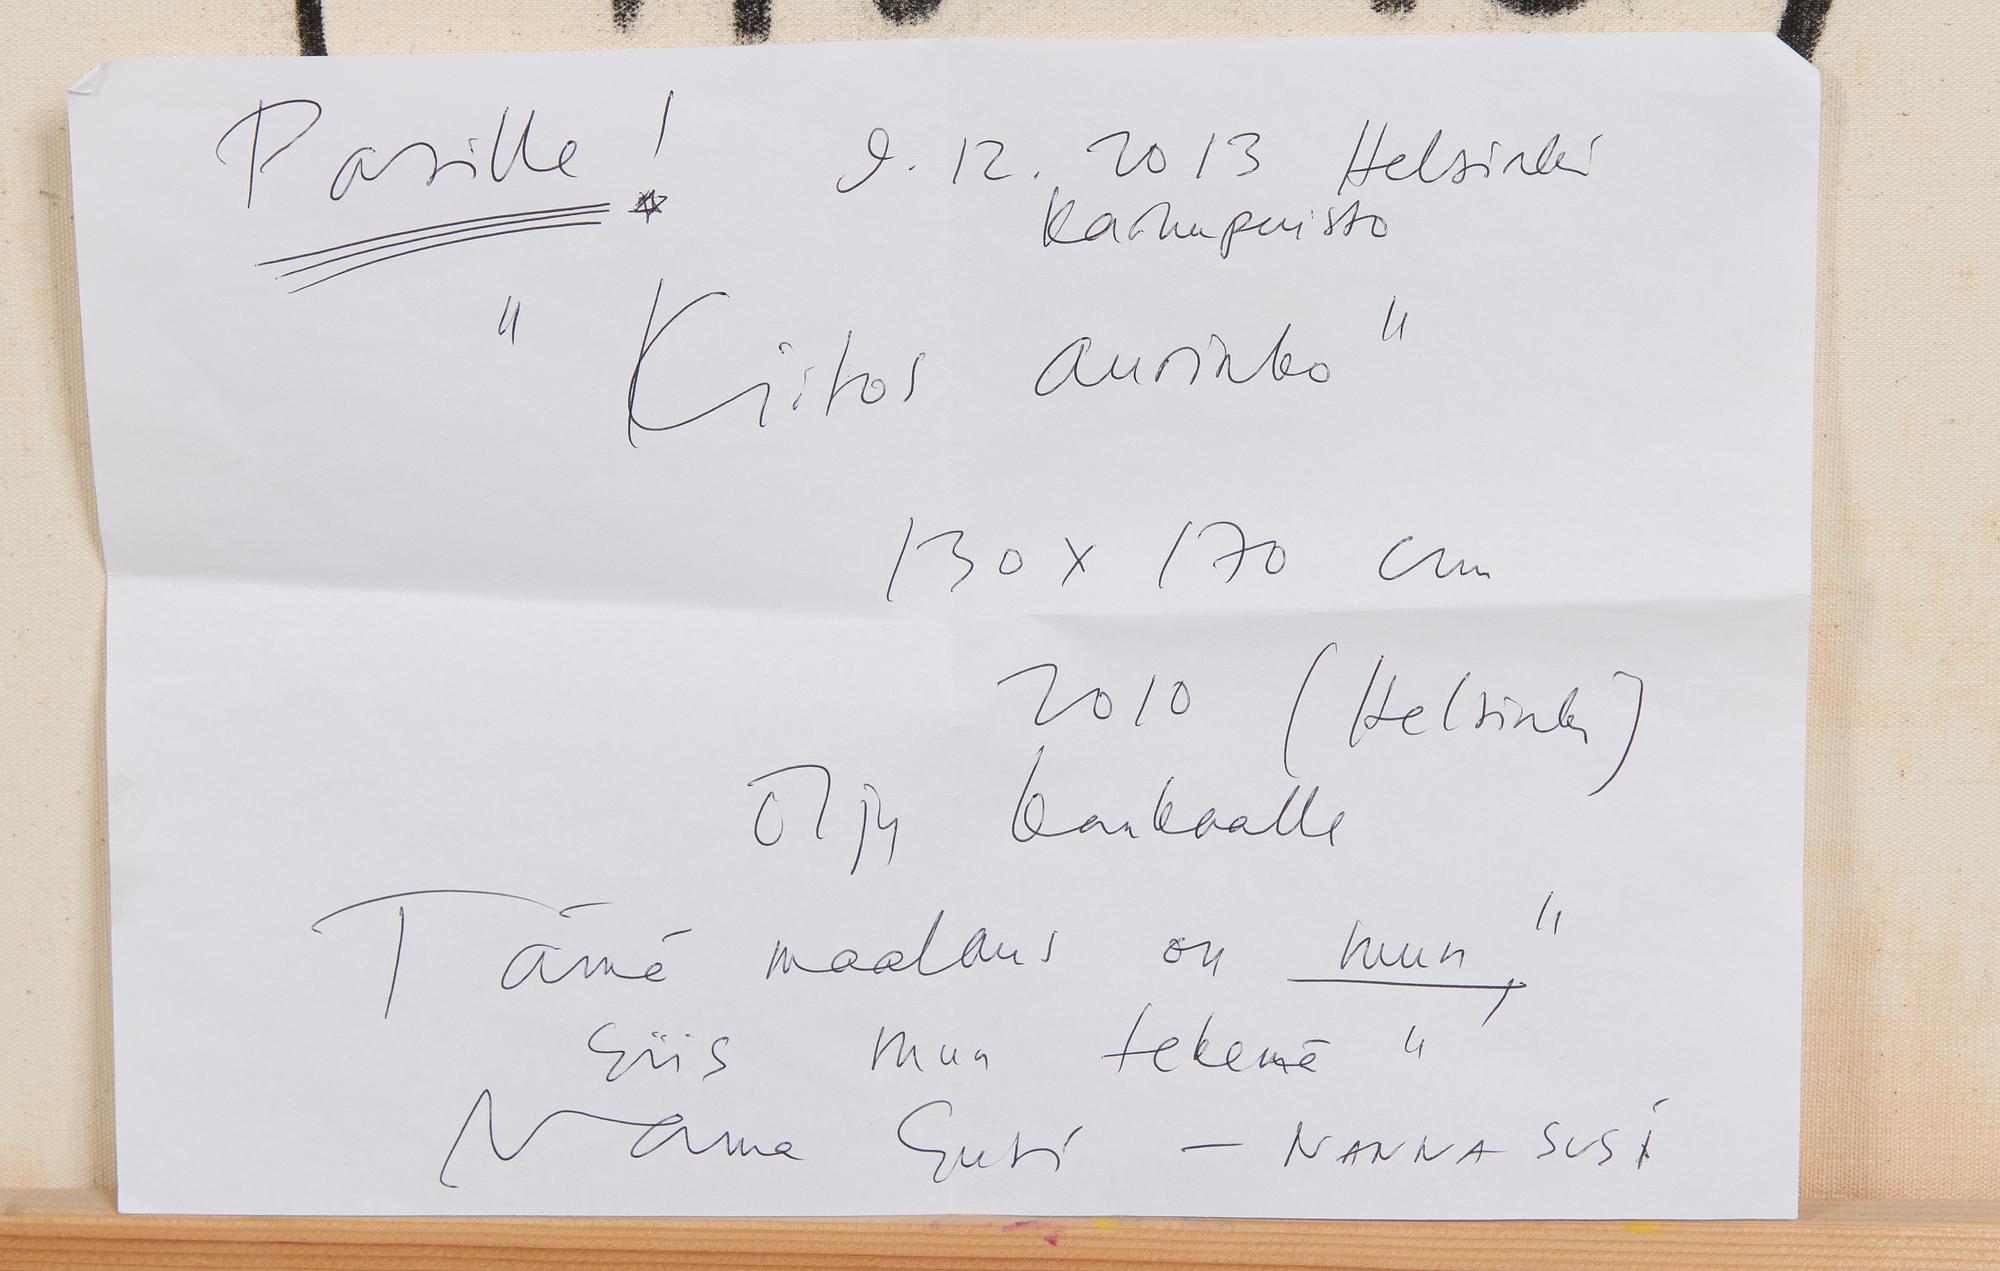 Pasille! 9.12.2013 Helsinki
Karhupuisto
" Kiitos aurinko "
130 x 170 cm
2010 (Helsinki)
Öljy kankaalle
Tämä maalaus on mun, "
siis mun tekemä "
Nanna Susi – NANNA SUSI